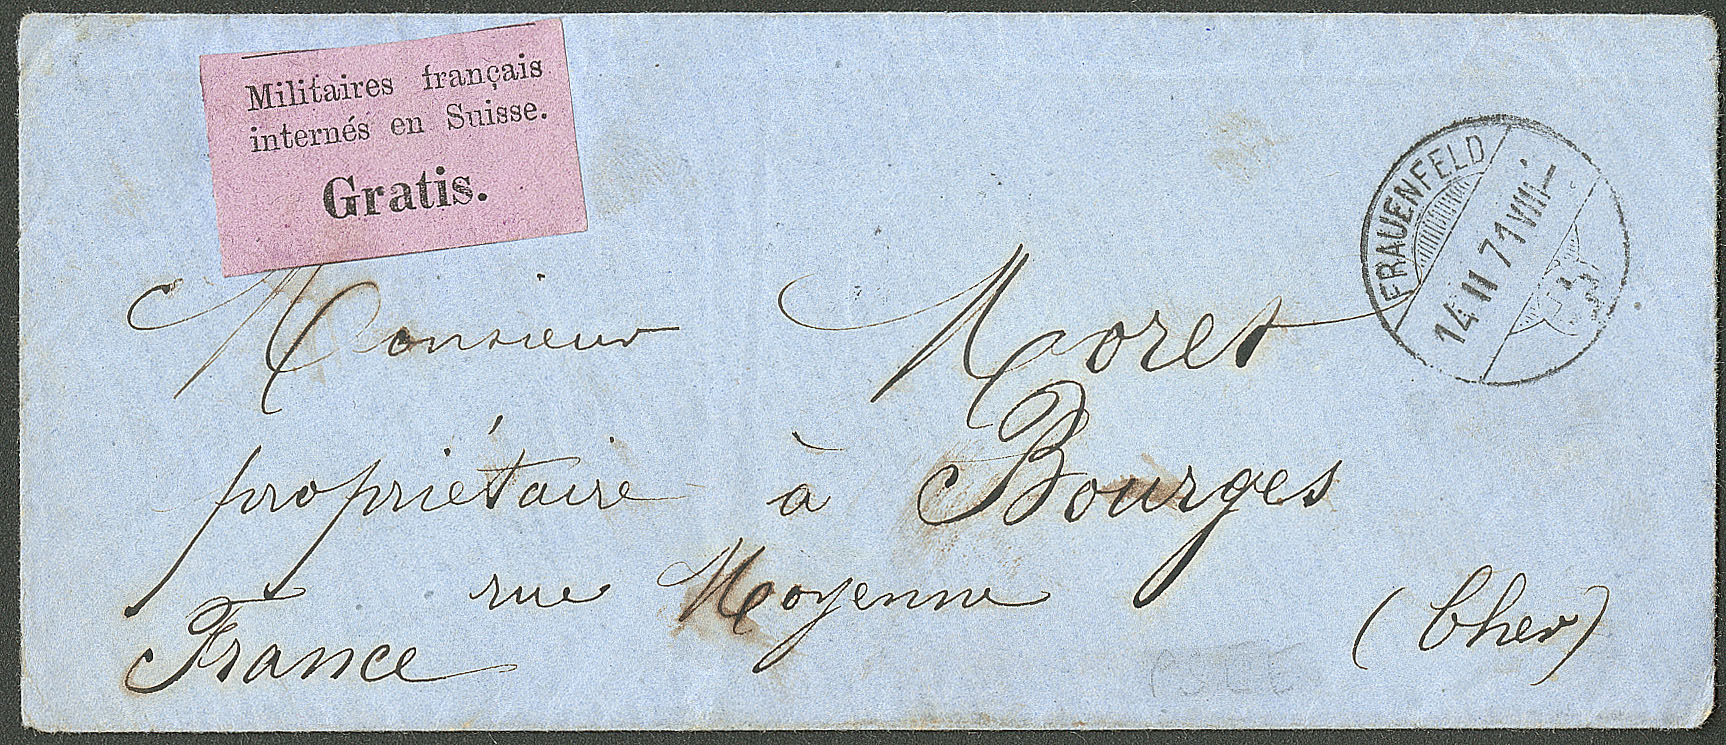 Militaires français
internés en Suisse.
Gratis.
FRAUENFELD
14 II 71 VIII–
Monsieur Moret
propriétaire à Bourges
rue Moyenne (Cher)
France